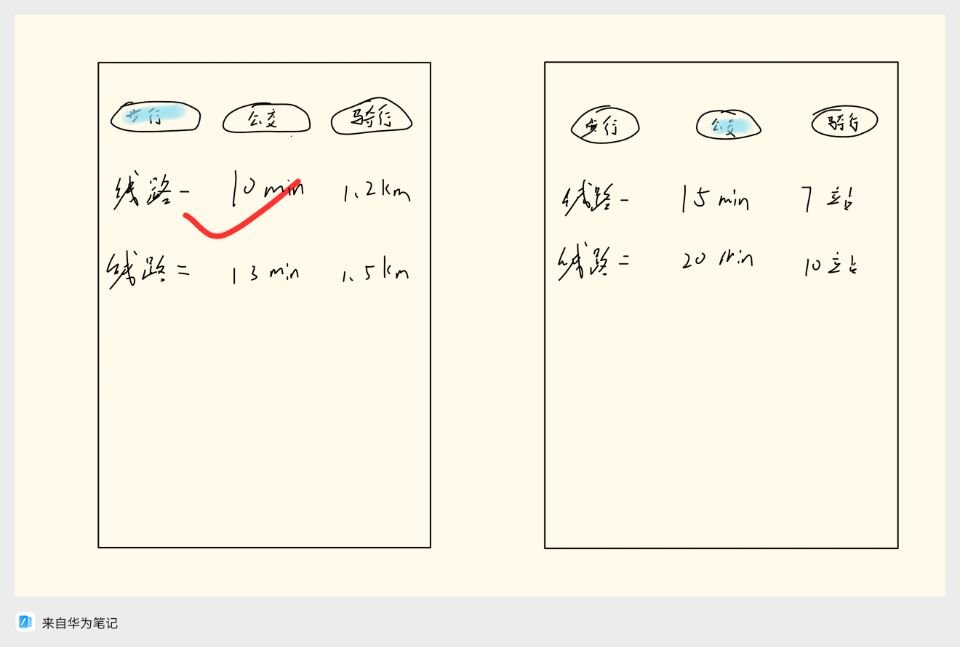 步行 公交 骑行
线路一 10 min 1.2km
线路二 13 min 1.5km
步行 公交 骑行
线路一 15 min 7 站
线路二 20 min 10 站
来自华为笔记